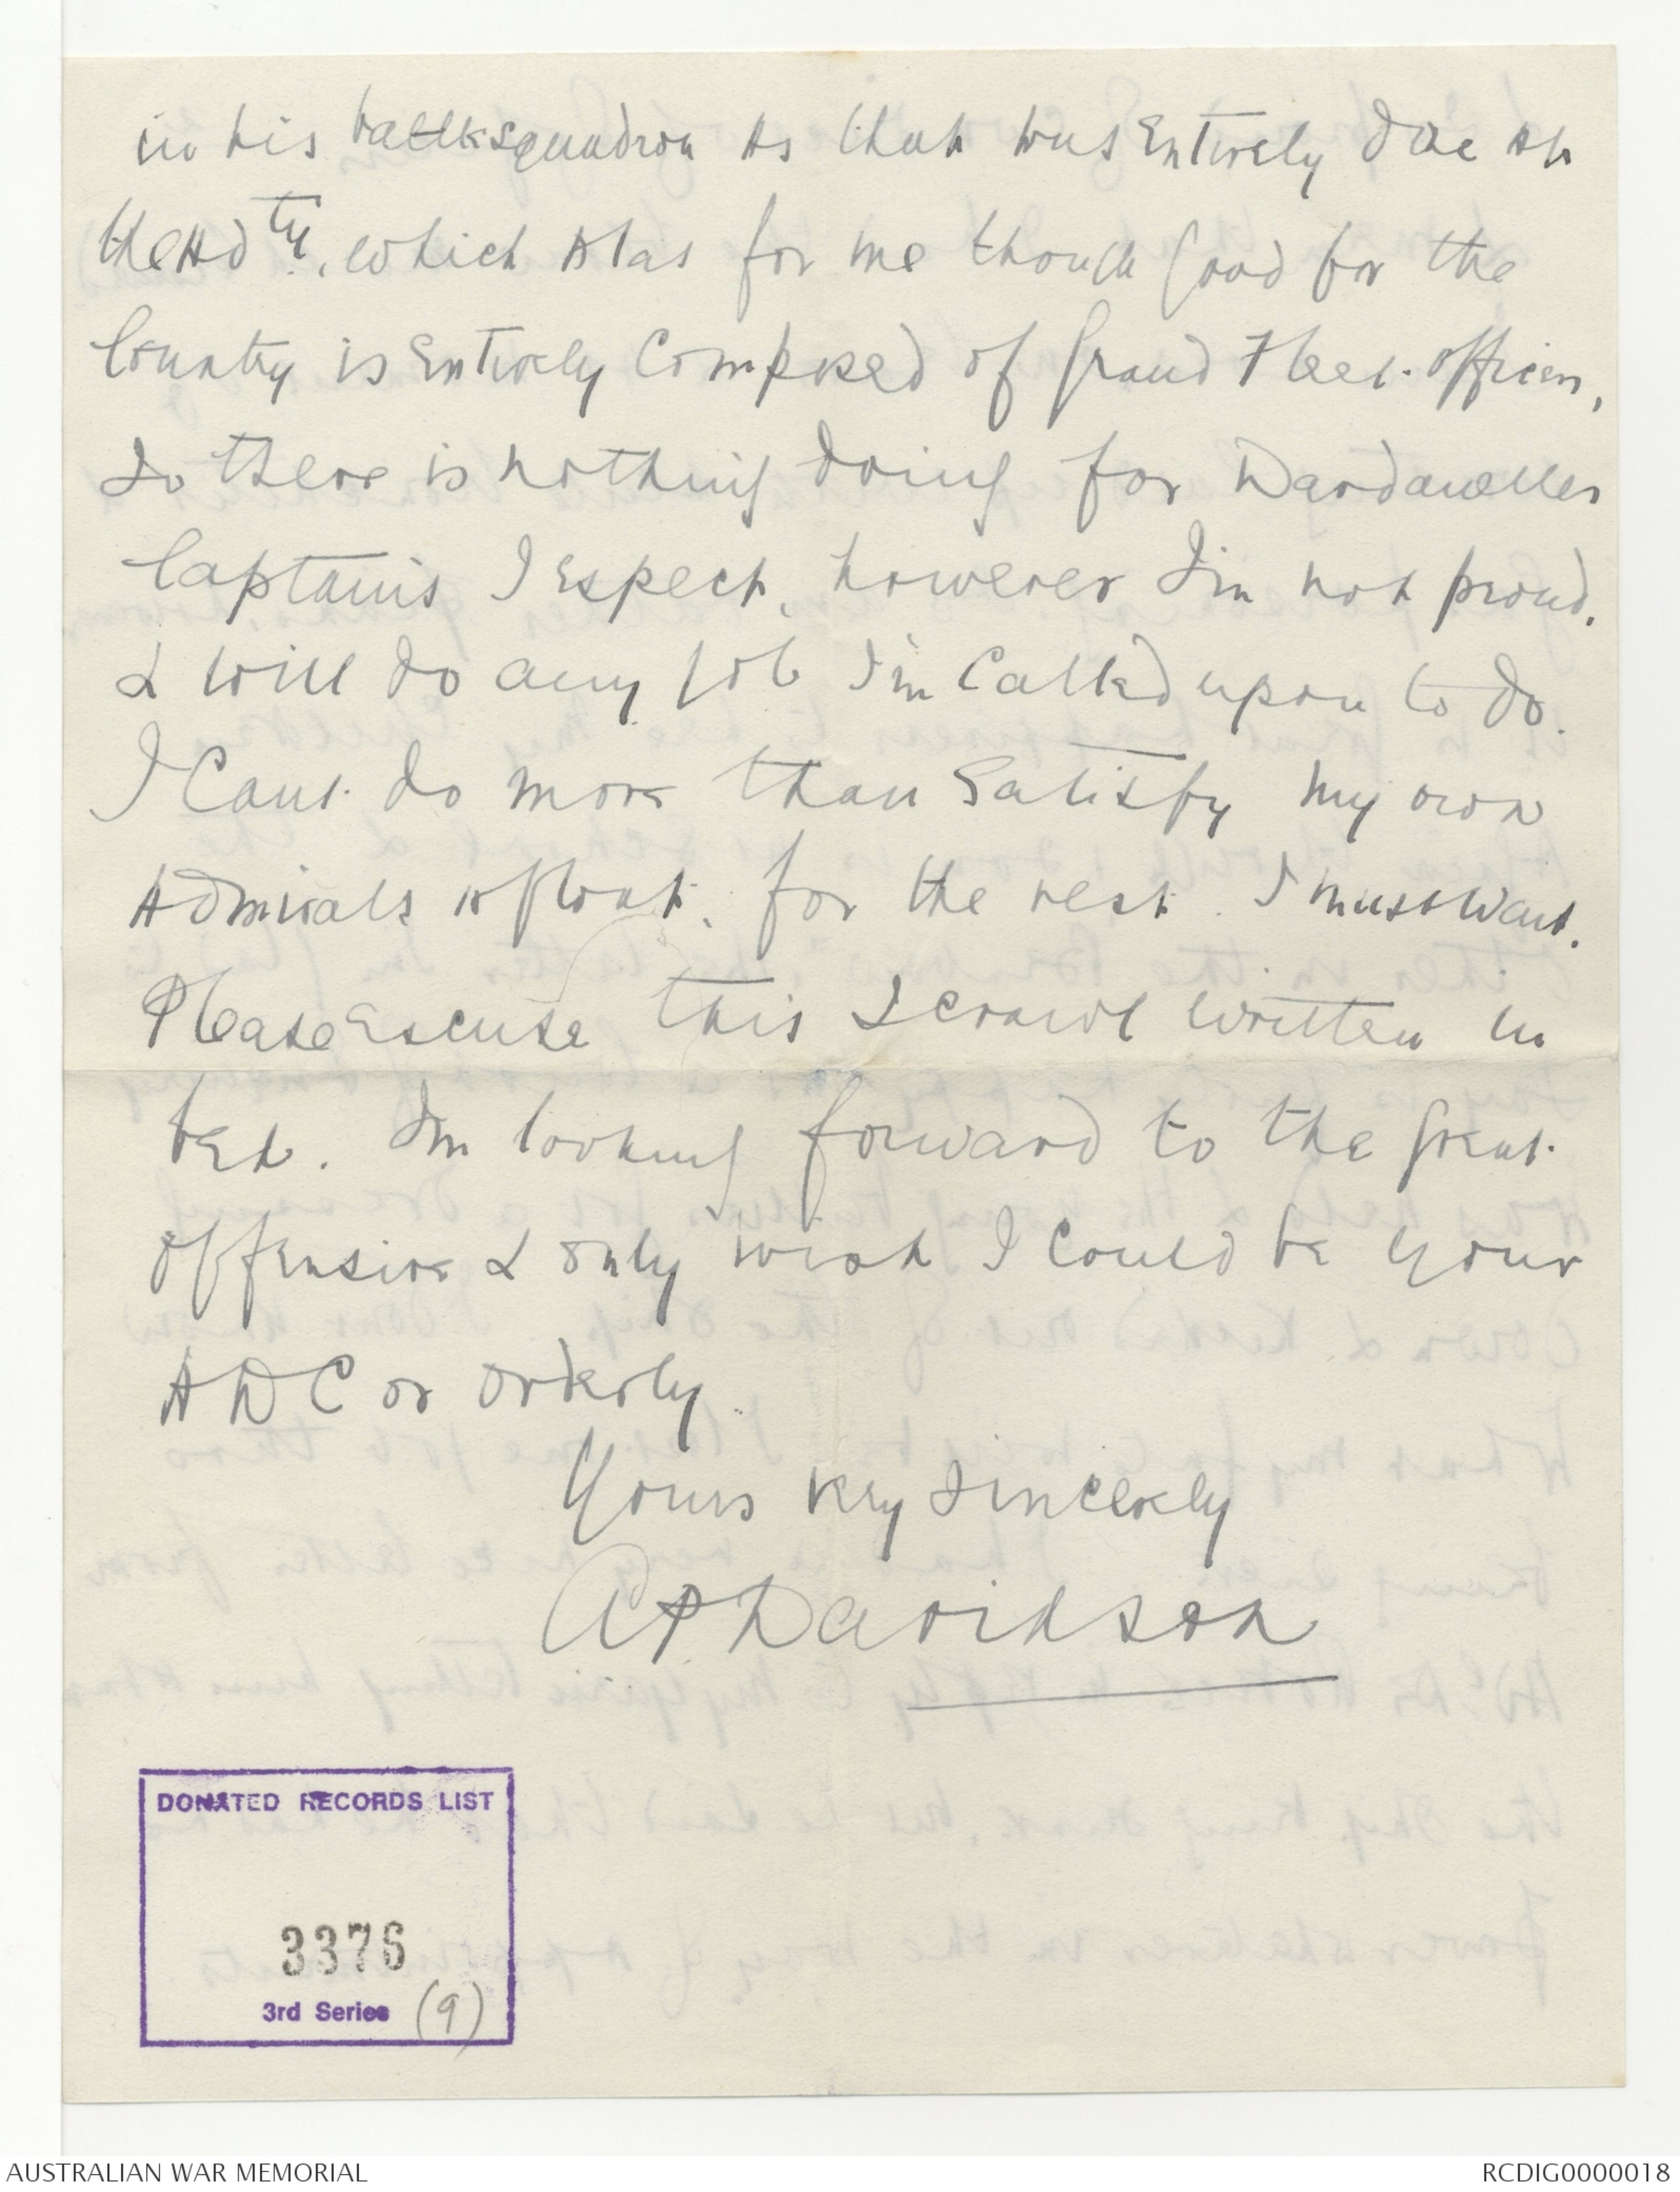 in his battlesquadron as that was Entirely done at
the Adty., which Alas for me though good for the
Country is Entirely Composed of Grand Fleet officers,
So there is nothing doing for Dardanelles
Captains I Expect, however I'm not proud,
& will do any job I'm Called upon to do.
I Cant do more than Satisfy my own
Admirals afloat, for the rest I must wait.
Please Excuse this Scrawl written in
bed. I'm looking forward to the great
offensive & only wish I could be your
ADC or orderly.
Yours very Sincerely
A P Davidson
DONATED RECORDS LIST
3376
3rd Series (9)
AUSTRALIAN WAR MEMORIAL
RCDIG0000018